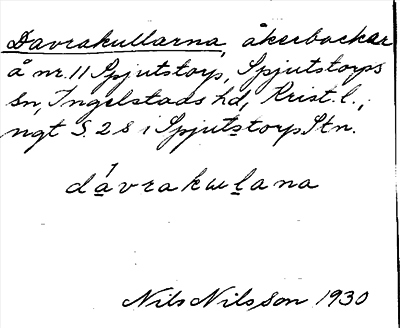 Davrakullarna, åkerbackar
å nr. 11 Spjutstorp, Spjutstorps
sn, Ingelstads hd, Krist. l.,
ngt S. 28 i Spjutstorp Stn.
davrakulana
Nils Nilsson 1930